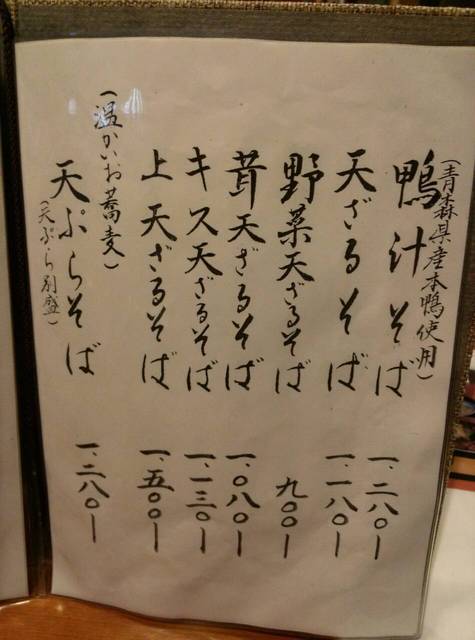 (青森県産本鴨使用)
鴨汁そば 一、二八〇ー
天ざるそば 一、一八〇ー
野菜天ざるそば 九〇〇ー
茸天ざるそば 一、〇八〇ー
キス天ざるそば 一、一三〇ー
上天ざるそば 一、五〇〇ー
(温かいお蕎麦)
天ぷらそば 一、二八〇ー
(天ぷら別盛)